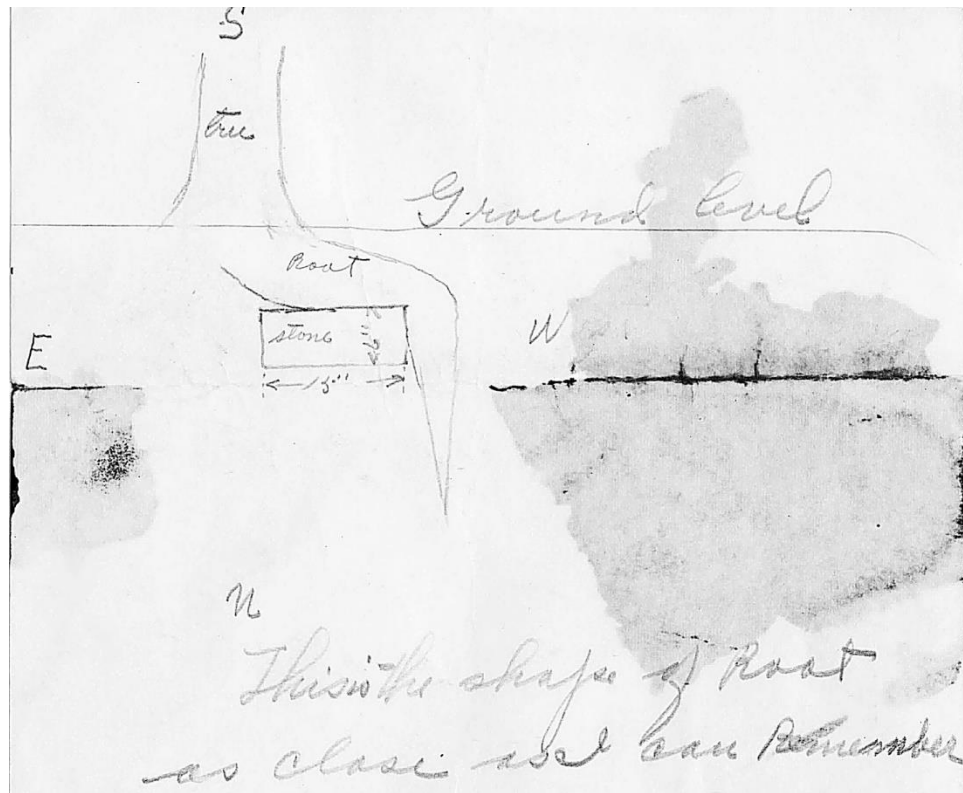 S
tree
Ground level
Root
stone
6"
E
W
15"
N
This is the shape of Root
as close as I can Remember